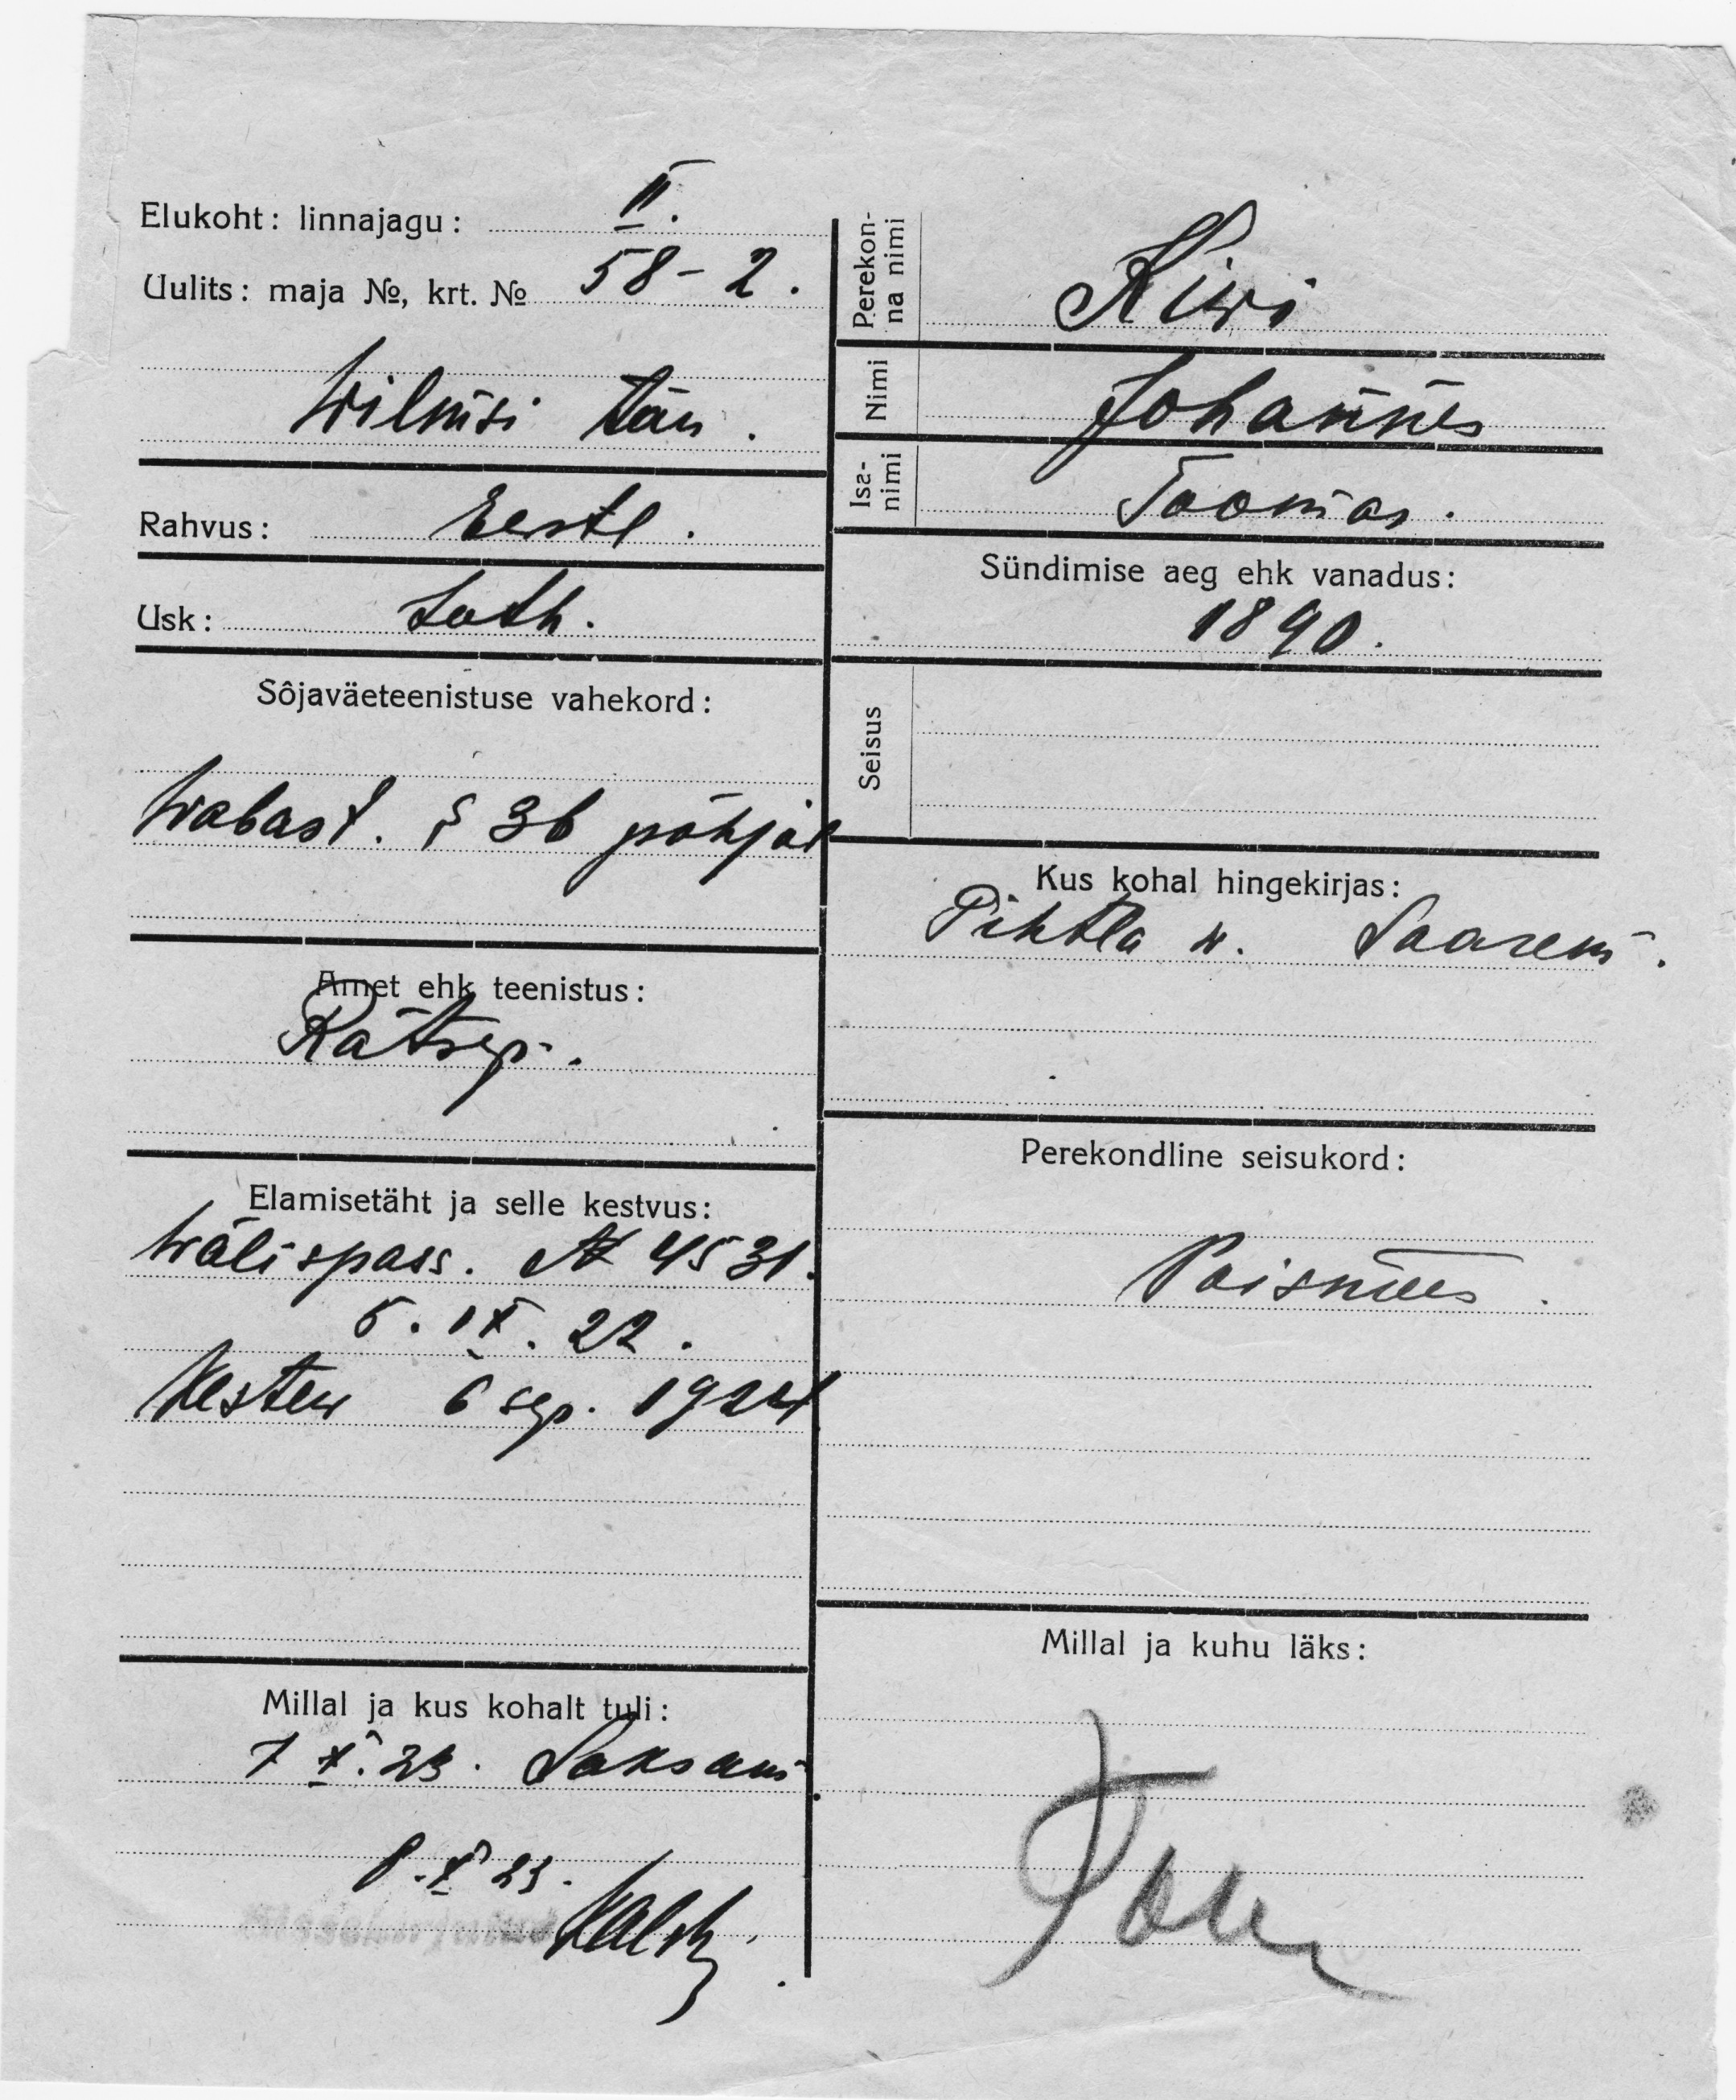 Elukoht: linnajagu: II.
Uulits: maja №, krt. № 58 - 2.
Wilmsi tän.
Rahvus: Eestl.
Usk: Luth.
Sôjaväeteenistuse vahekord:
Wabast. § 36 põhjal
Amet ehk teenistus:
Rätsep.
Elamisetäht ja selle kestvus:
Wälispass. № 4531.
5. IX. 22.
Kestew 6 sep. 1924
Millal ja kus kohalt tuli:
7 X. 23. Saksam
8. X 23.
Perekon-
na nimi
Kiwi
Nimi
Johannes
Isa-
nimi
Toomas.
Sündimise aeg ehk vanadus:
1890.
Seisus
Kus kohal hingekirjas:
Pihtla w. Saarem.
Perekondline seisukord:
Poismees.
Millal ja kuhu läks: